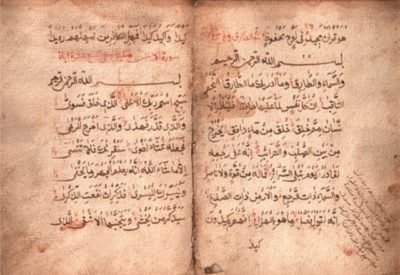 هو قران مجيد في لوح محفوظ
بسم الله الرحمن الرحيم
والسماء والطارق وما ادريك ما الطارق النجم
الثاقب ان كل نفس لما عليها حافظ فلينظر الا
نسان مم خلق خلق من ماء دافق يخرج
من بين الصلب والترائب انه على رجعه
لقادر يوم تبلى السرائر فما له من قوة ولا ناصر
والسماء ذات الرجع والارض ذات الصدع
انه لقول فصل وما هو بالهزل انهم يكيدون
كيد
كيدا واكيد كيدا فمهل الكافرين امهلهم رويدا
سورة الاعلى
بسم الله الرحمن الرحيم
سبح اسم ربك الاعلى الذي خلق فسوى
والذي قدر فهدى والذي اخرج المرعى
فجعله غثاء احوى سنقرئك فلا تنسى
الا ما شاء الله انه يعلم الجهر وما يخفى
ونيسرك لليسرى فذكر ان نفعت الذكرى
سيذكر من يخشى ويتجنبها الاشقى الذى